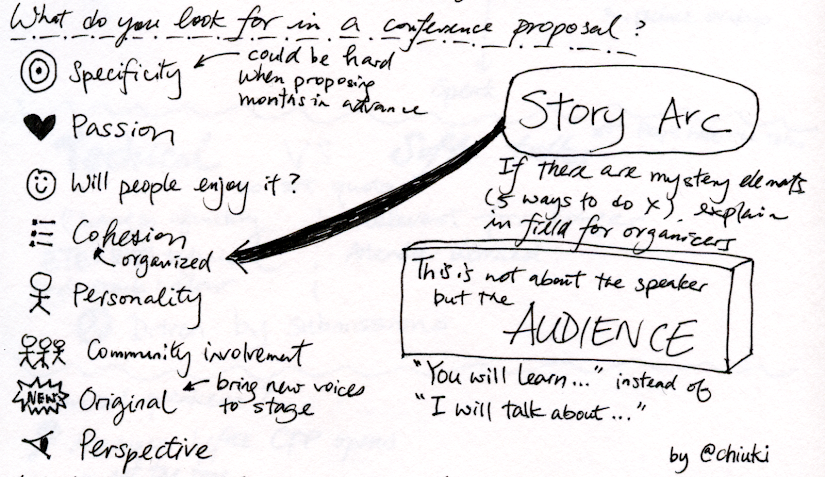 What do you look for in a conference proposal?
Specificity
could be hard
when proposing
months in advance
Passion
Will people enjoy it?
Cohesion
organized
Personality
Community involvement
NEW
Original
bring new voices
to stage
Perspective
Story Arc
If there are mystery elements
(5 ways to do X), explain
in field for organizers
This is not about the speaker
but the
AUDIENCE
"You will learn..." instead of
"I will talk about..."
by @chiuki